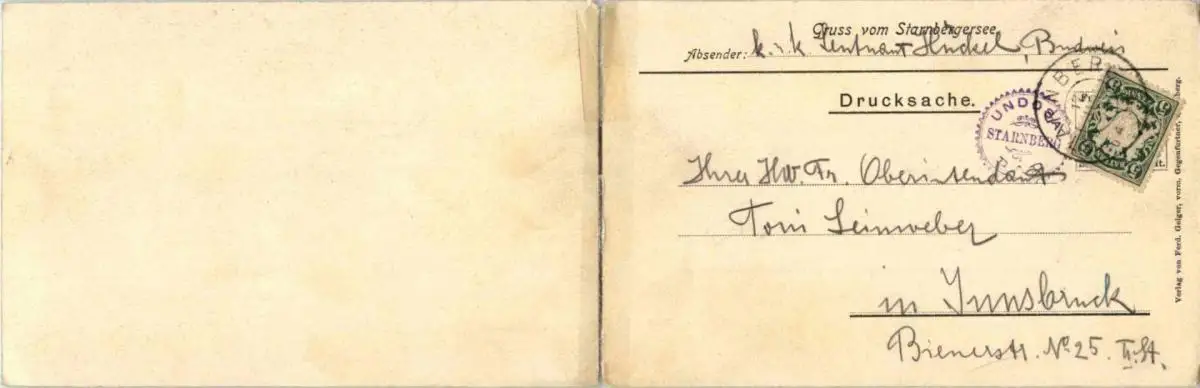 Gruss vom Starnbergersee.
Absender: k. u. k. Leutnant Hückel, Budweis
Drucksache.
UNDOSA
STARNBERG
Ihrer HW. Fr. Oberintendant
Toni Leinweber
in Innsbruck
Bienerstr. No. 25. II. St.
Verlag von Ferd. Geiger, vorm. Gegenfurtner,